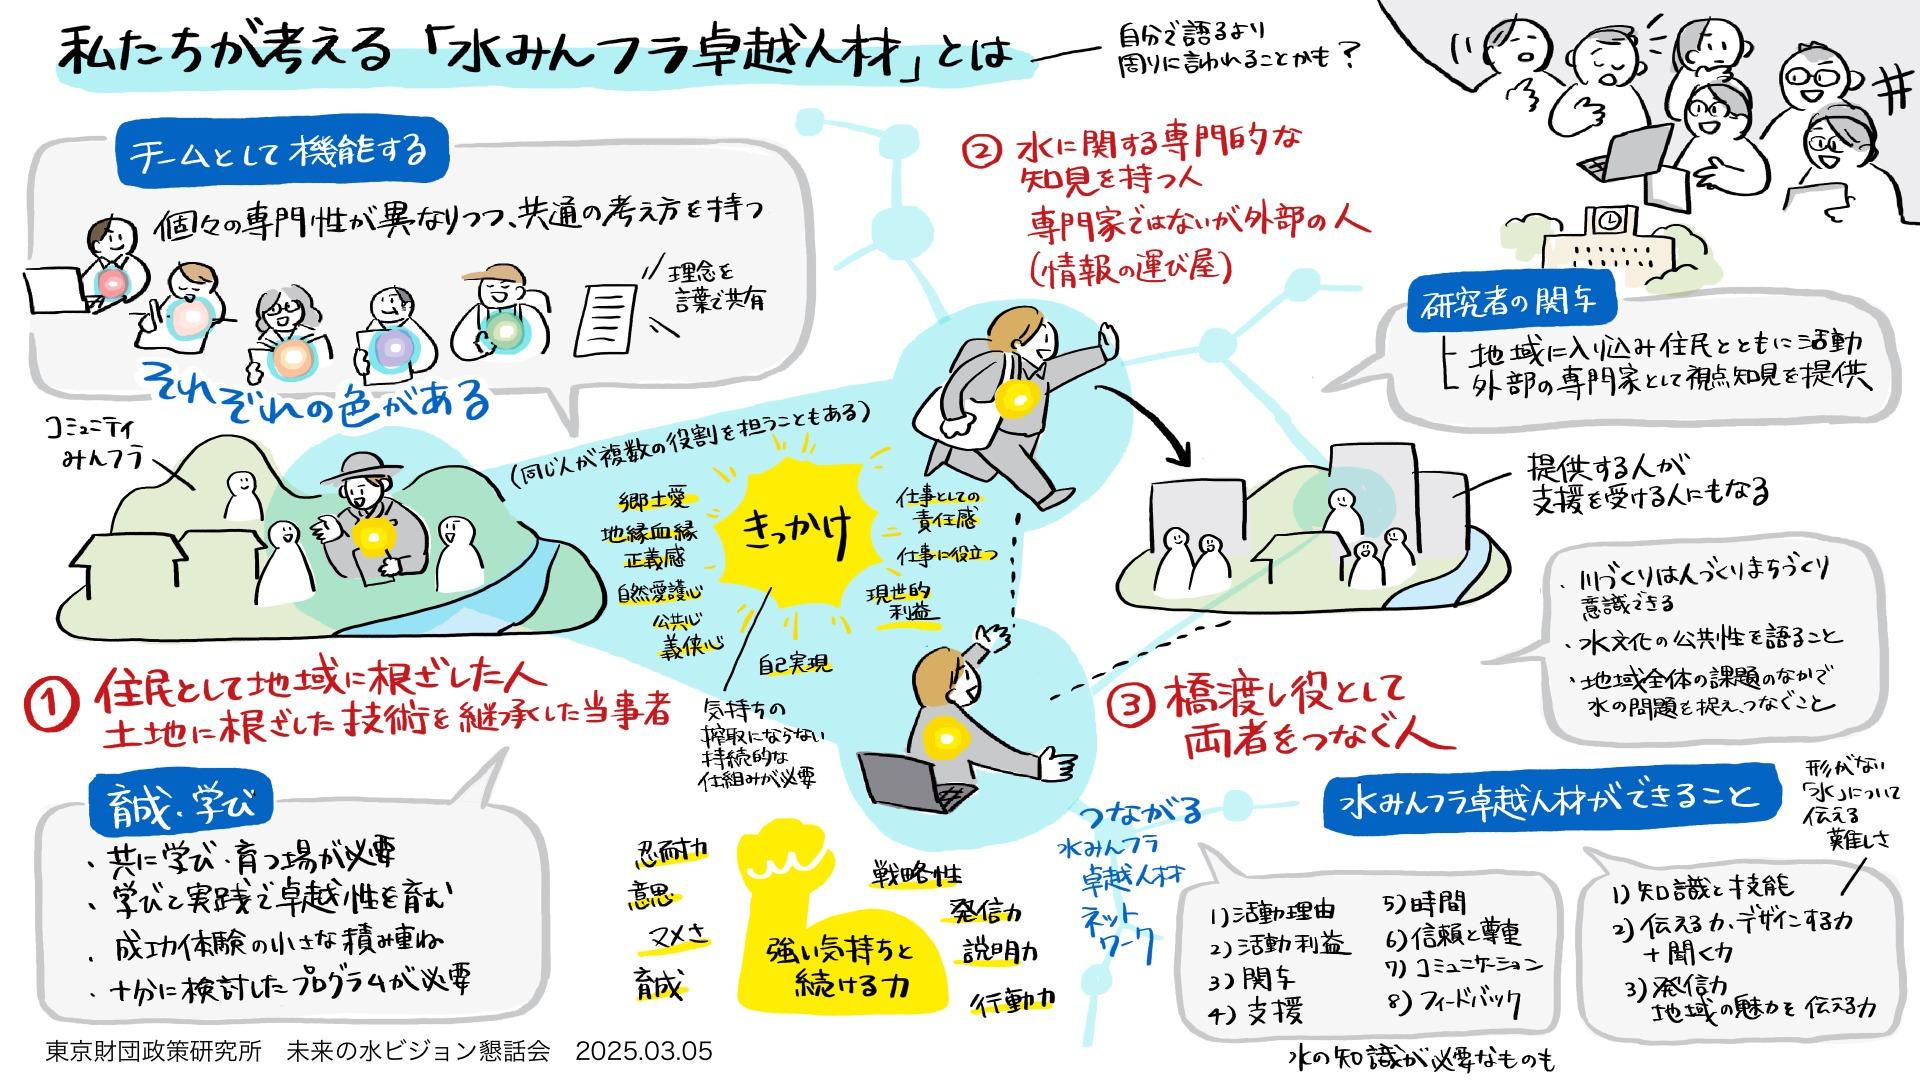 私たちが考える「水みんフラ卓越人材」とは
自分で語るより
周りに言われることかも？
チームとして機能する
個々の専門性が異なりつつ、共通の考え方を持つ
理念を
言葉で共有
それぞれの色がある
コミュニティ
みんフラ
① 住民として地域に根ざした人
土地に根ざした技術を継承した当事者
育成・学び
・共に学び・育つ場が必要
・学びと実践で卓越性を育む
・成功体験の小さな積み重ね
・十分に検討したプログラムが必要
② 水に関する専門的な
知見を持つ人
専門家ではないが外部の人
(情報の運び屋)
(同じ人が複数の役割を担うこともある)
きっかけ
郷土愛
地縁血縁
正義感
自然愛護心
公共心
義侠心
自己実現
仕事としての
責任感
仕事に役立つ
現世的
利益
気持ちの
搾取にならない
持続的な
仕組みが必要
忍耐力
意思
マメさ
育成
強い気持ちと
続ける力
戦略性
発信力
説明力
行動力
研究者の関与
地域に入り込み住民とともに活動
外部の専門家として視点知見を提供
提供する人が
支援を受ける人にもなる
・川づくりは人づくりまちづくり
意識できる
・水文化の公共性を語ること
・地域全体の課題のなかで
水の問題を捉え、つなぐこと
③ 橋渡し役として
両者をつなぐ人
つながる
水みんフラ
卓越人材
ネット
ワーク
水みんフラ卓越人材ができること
形がない
「水」について
伝える
難しさ
1)活動理由
2)活動利益
3)関与
4)支援
5)時間
6)信頼と尊重
7)コミュニケーション
8)フィードバック
1)知識と技能
2)伝える力、デザインする力
+聞く力
3)発信力
地域の魅力を伝える力
水の知識が必要なものも
東京財団政策研究所　未来の水ビジョン懇話会　2025.03.05